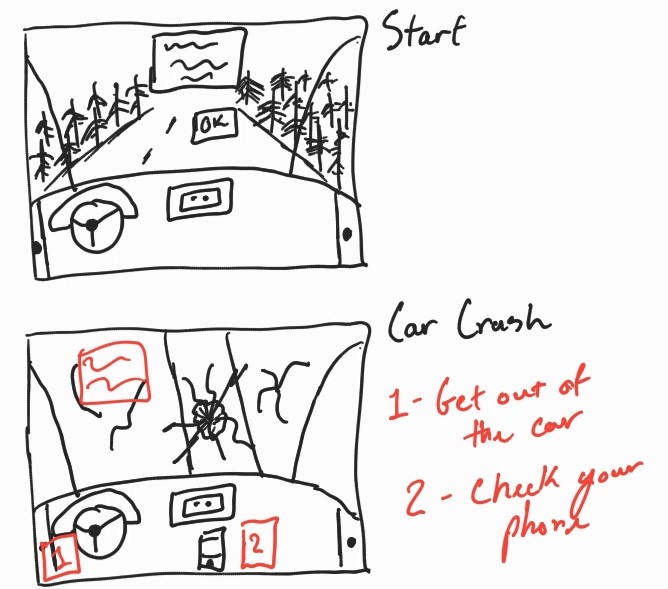 Start
OK
Car Crash
1- Get out of
the car
2 - Check your
phone
1
2